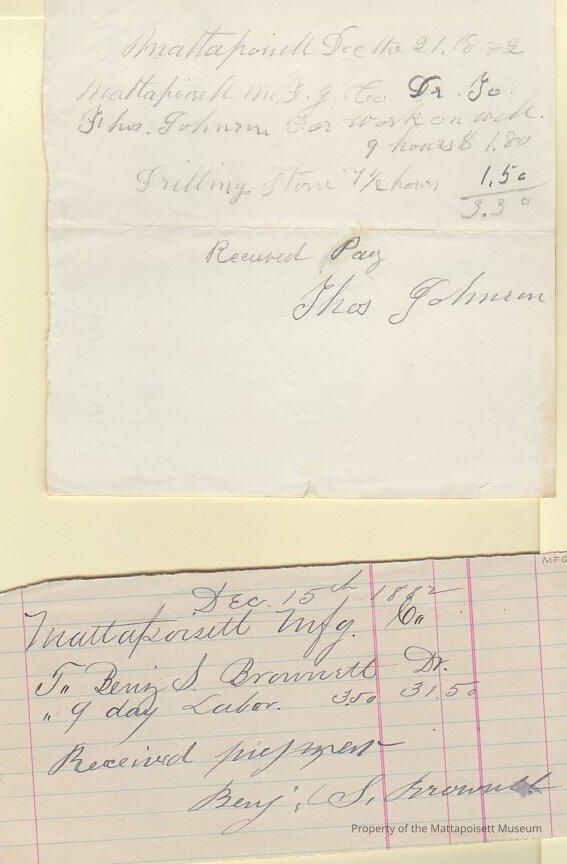 Mattapoisett Dec the 21. 1882
Mattapoisett M.F.g. Co. Dr. To.
Thos. Johnson For work on well.
9 hours $ 1.80
Drilling Stone 7 1/2 hours 1.50
3.30
Received Pay
Thos Johnson
MFG
Dec. 15th 1882
Mattapoisett Mfg. Co
To Benj S. Brownell Dr.
" 9 day Labor. 3.50 31.50
Received payment
Benj. S. Brownell
Property of the Mattapoisett Museum